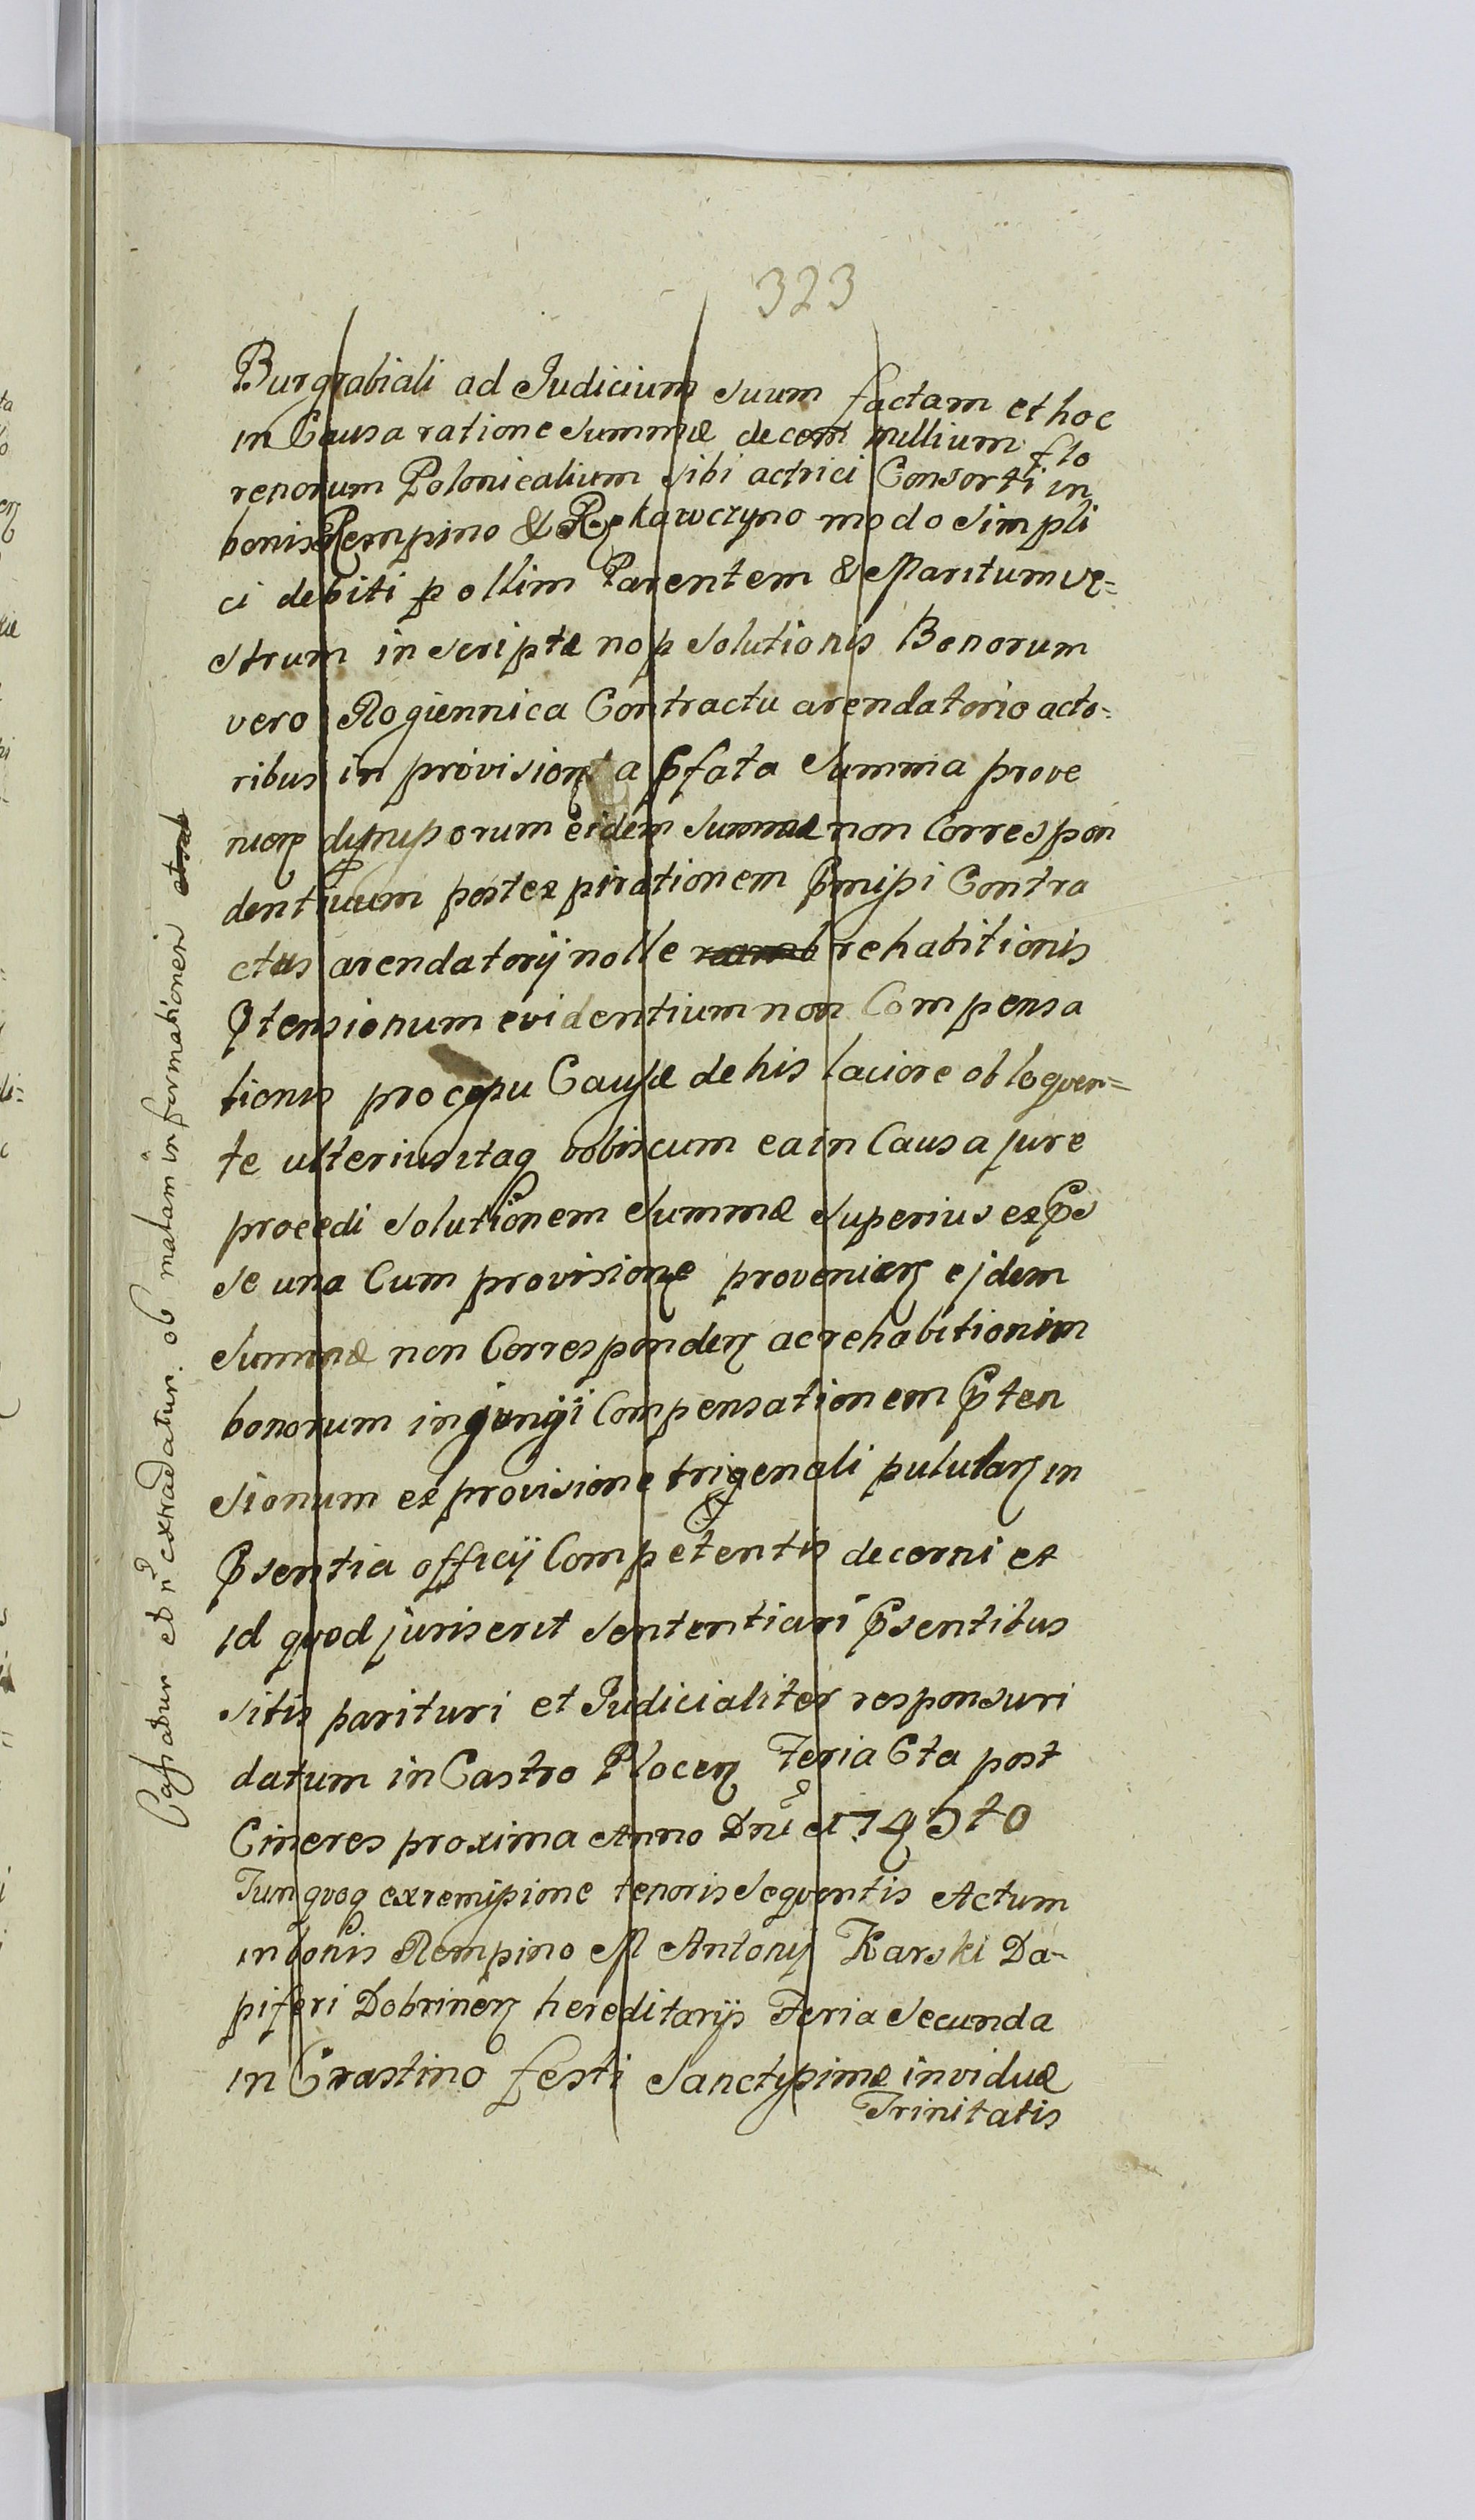 323
Burgrabiali ad Judicium suum factam et hoc
in Causa ratione Summæ decem millium flo
renorum Polonicalium sibi actrici Consorti in
bonis Rempino & Rękawczyno modo simpli
ci debiti p ollim Parentem & Maritum ve=
strum inscriptæ non solutionis Bonorum
vero Rogiennica Contractu arendatorio acto=
ribus in provisione a pfata Summa prove
nien dimissorum eidem Summæ non Correspon
dentium post expirationem pmissi Contra
ctus arendatorij nolle rehabitionis
ptensionum evidentium non Compensa
tionis processu Causæ de his laciore obloquen=
te ulterius itaq vobiscum ea in Causa jure
procedi solutionem Summæ superius exps
se una Cum provisione provenien ejdem
Summæ non Corresponden ac rehabitionem
bonorum injungi Compensationem pten
sionum ex provisione trigenali pululan in
psentia officij Competentis decerni et
id quod juris erit sententiari psentibus
sitis parituri et Judicialiter responsuri
datum in Castro Plocen Feria 6ta post
Cineres proxima Anno Dni 1745to
Tun quoq ex remissione tenoris sequentis Actum
in bonis Rempino M Antonij Karski Da-
piferi Dobrinen hereditarijs Feria Secunda
in Crastino festi Sanctissimæ inviduæ
Trinitatis
Cassatur et n extradatur ob malam informationem